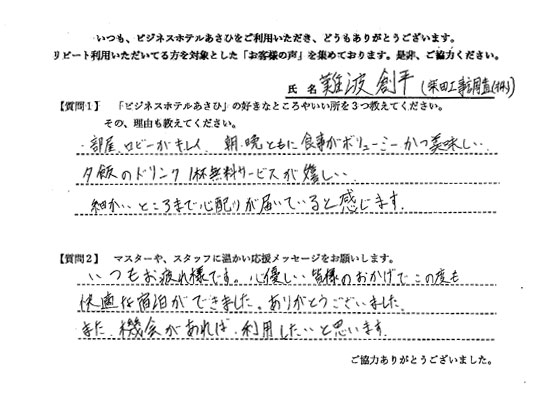 いつも、ビジネスホテルあさひをご利用いただき、どうもありがとうございます。
リピート利用いただいてる方を対象とした「お客様の声」を集めております。是非、ご協力ください。
氏名 難波 創平 (柴田工事調査(株))
【質問1】 「ビジネスホテルあさひ」の好きなところやいい所を3つ教えてください。
その、理由も教えてください。
・部屋、ロビーがキレイ 朝・晩ともに食事がボリューミーかつ美味しい
夕飯のドリンク1杯無料サービスが嬉しい
細かいところまで心配りが届いていると感じます。
【質問2】 マスターや、スタッフに温かい応援メッセージをお願いします。
いつもお疲れ様です。心優しい皆様のおかげでこの度も
快適な宿泊ができました。ありがとうございました。
また、機会があれば、利用したいと思います。
ご協力ありがとうございました。